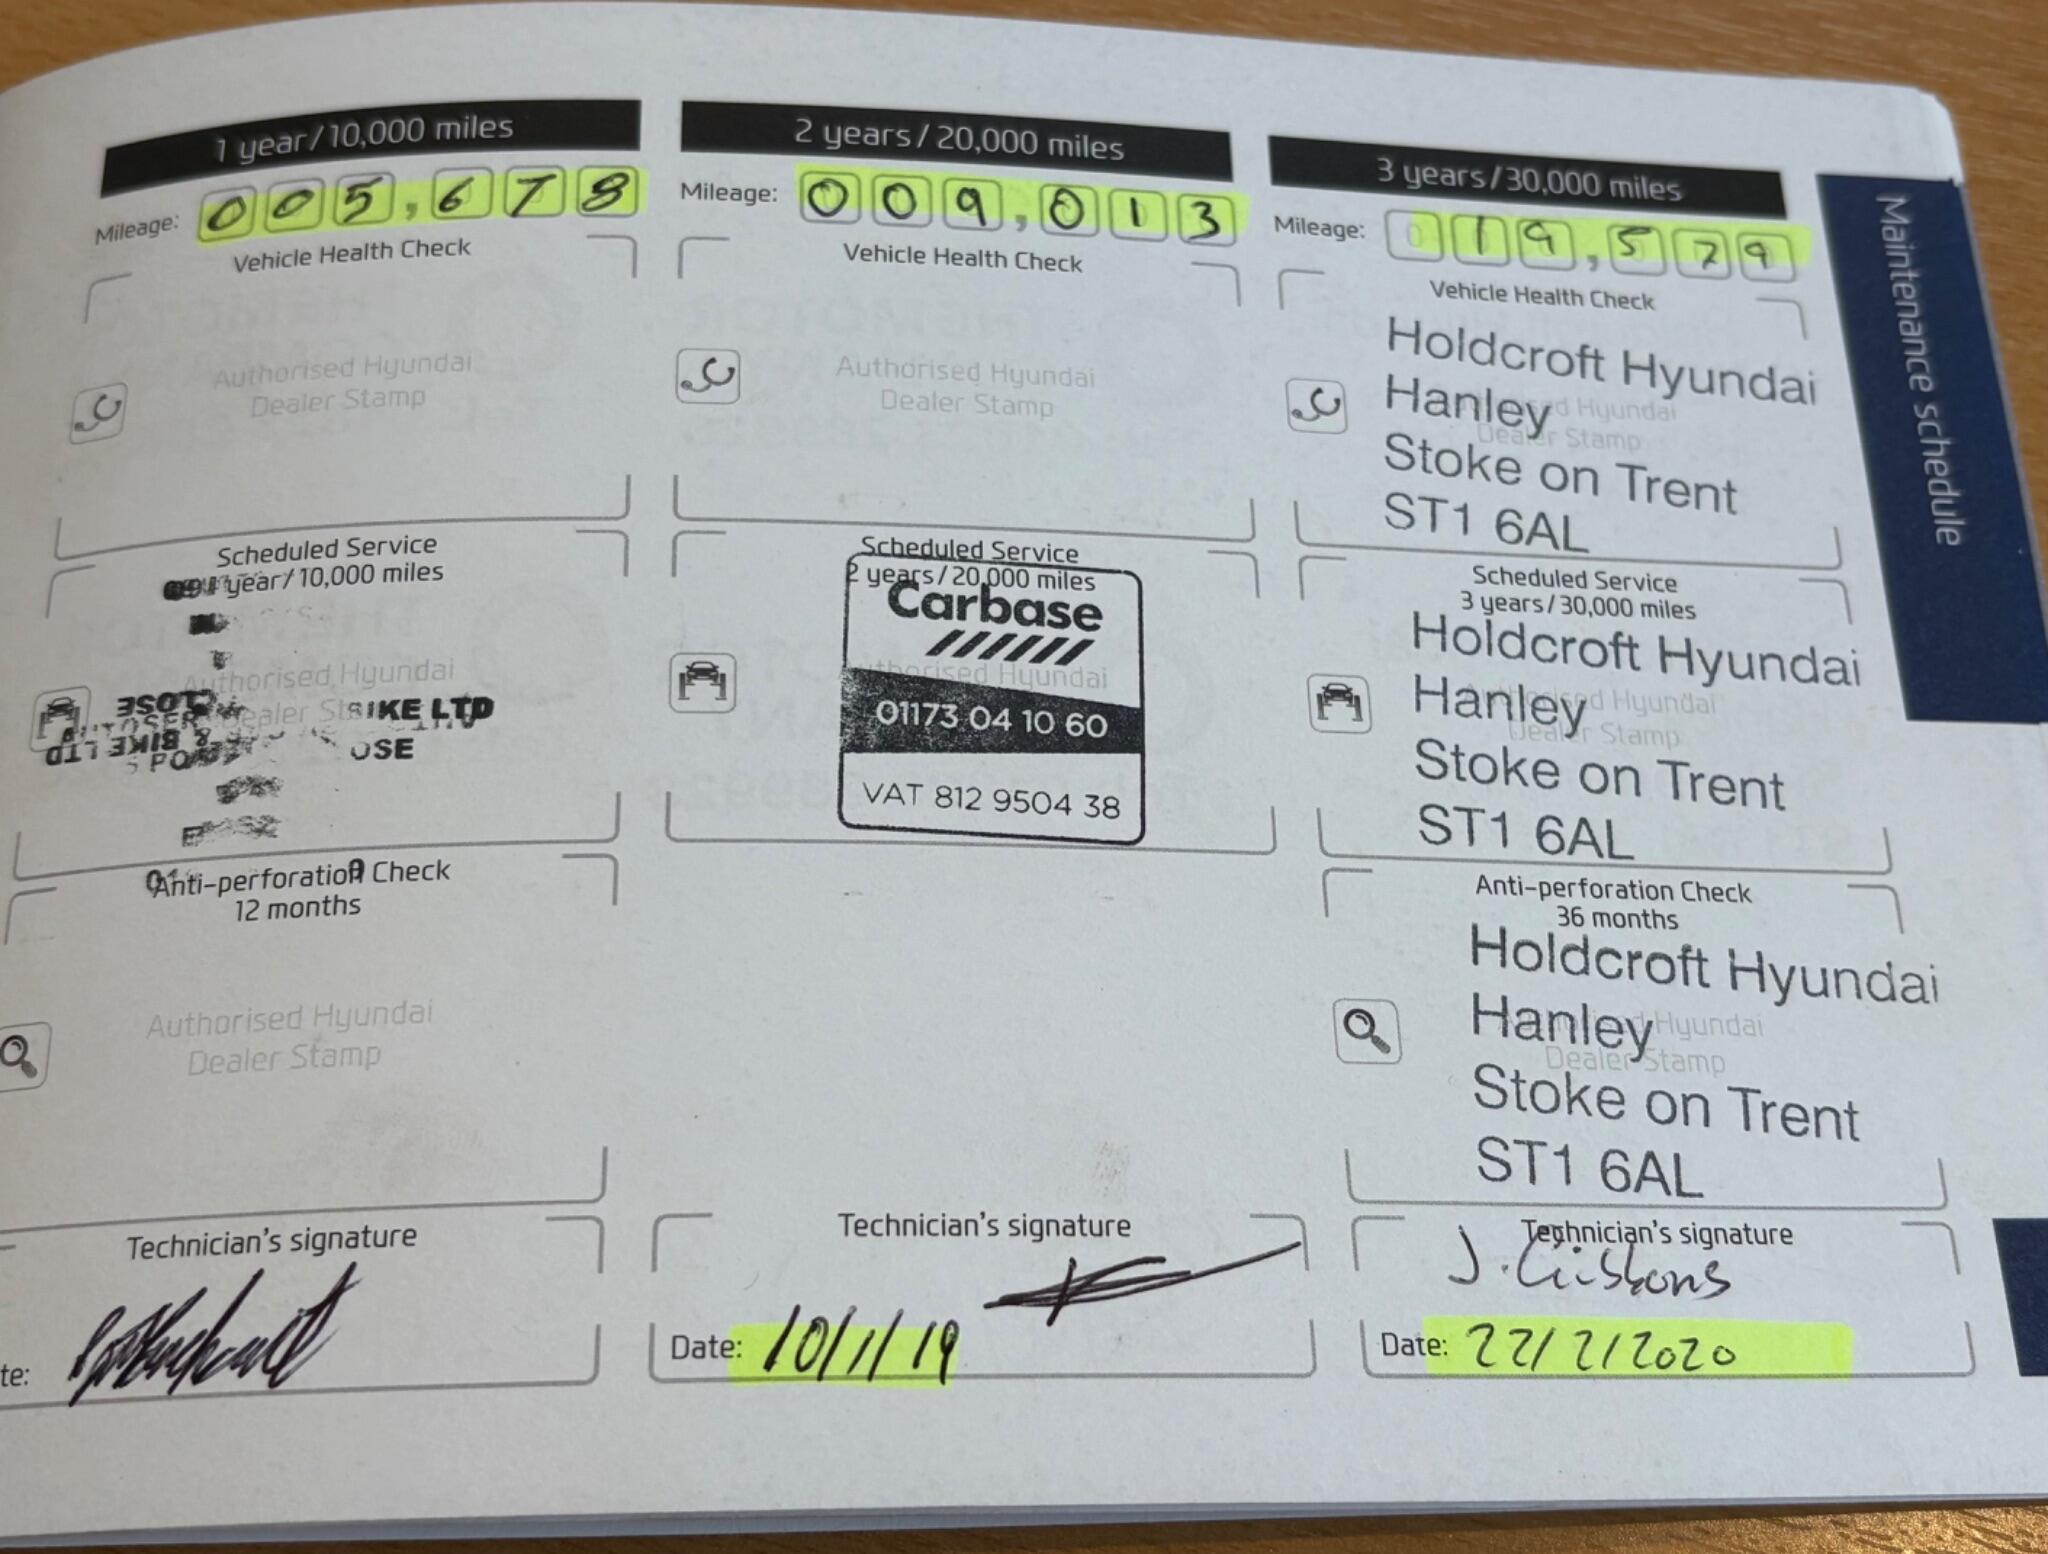 Maintenance schedule
1 year/10,000 miles
Mileage: 005,678
Vehicle Health Check
Authorised Hyundai
Dealer Stamp
Scheduled Service
1 year/10,000 miles
Authorised Hyundai
Dealer
CLOSE
BIKE LTD
& BIKE LTD
OSE
Anti-perforation Check
12 months
Authorised Hyundai
Dealer Stamp
Technician's signature
te:
2 years/20,000 miles
Mileage: 009,013
Vehicle Health Check
Authorised Hyundai
Dealer Stamp
Scheduled Service
2 years/20,000 miles
Carbase
Authorised Hyundai
01173 04 10 60
VAT 812 9504 38
Technician's signature
Date: 10/1/19
3 years/30,000 miles
Mileage: 019,579
Vehicle Health Check
Holdcroft Hyundai
Hanley
Authorised Hyundai
Dealer Stamp
Stoke on Trent
ST1 6AL
Scheduled Service
3 years/30,000 miles
Holdcroft Hyundai
Hanley
Authorised Hyundai
Dealer Stamp
Stoke on Trent
ST1 6AL
Anti-perforation Check
36 months
Holdcroft Hyundai
Hanley
Authorised Hyundai
Dealer Stamp
Stoke on Trent
ST1 6AL
Technician's signature
J. Gibbons
Date: 22/2/2020